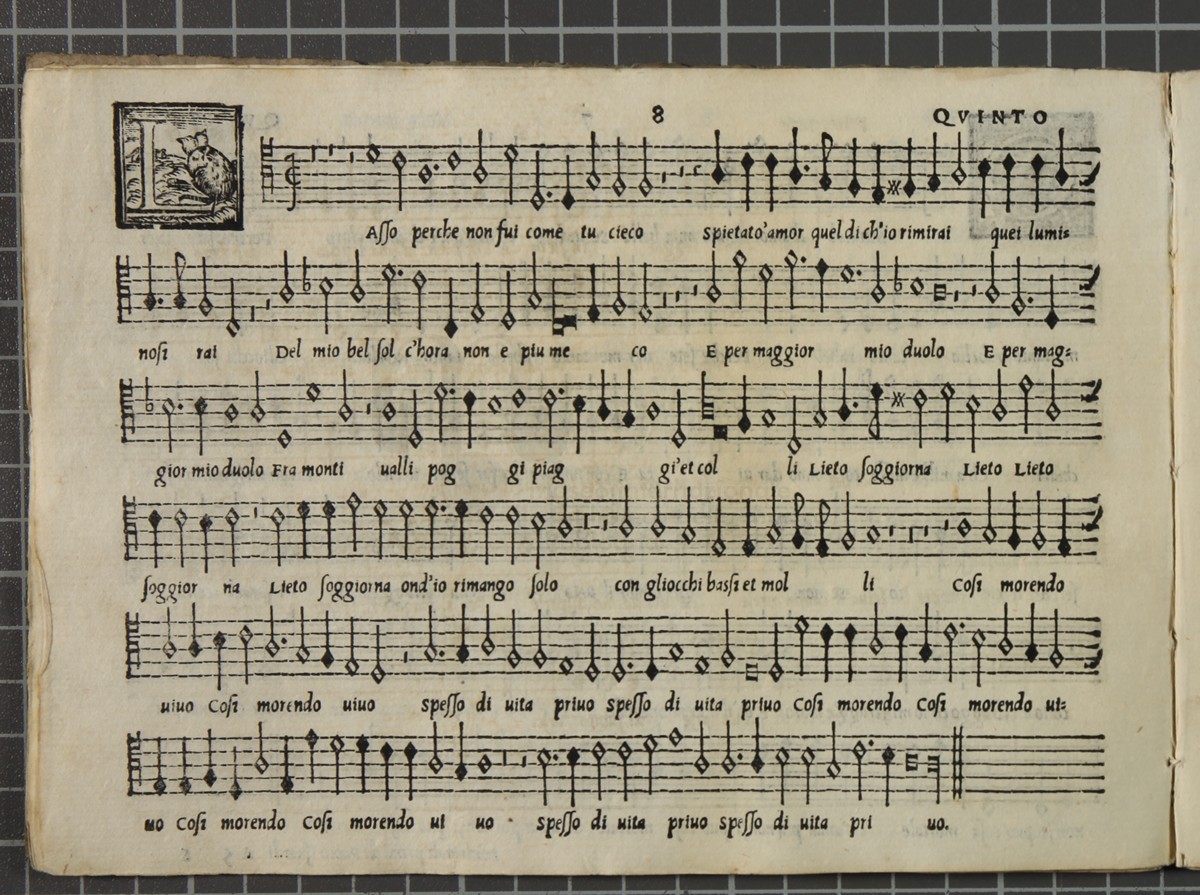 8 QVINTO
L Asso perche non fui come tu cieco spietato'amor quel di ch'io rimirai quei lumi=
nosi rai Del mio bel sol c'hora non e piu me co E per maggior mio duolo E per mag=
gior mio duolo Fra monti ualli pog gi piag gi'et col li Lieto soggiorna Lieto Lieto
soggior na Lieto soggiorna ond'io rimango solo con gliocchi bassi et mol li Cosi morendo
uiuo Cosi morendo uiuo spesso di uita priuo spesso di uita priuo Cosi morendo Cosi morendo ui=
uo Cosi morendo Cosi morendo ui uo spesso di uita priuo spesso di uita pri uo.